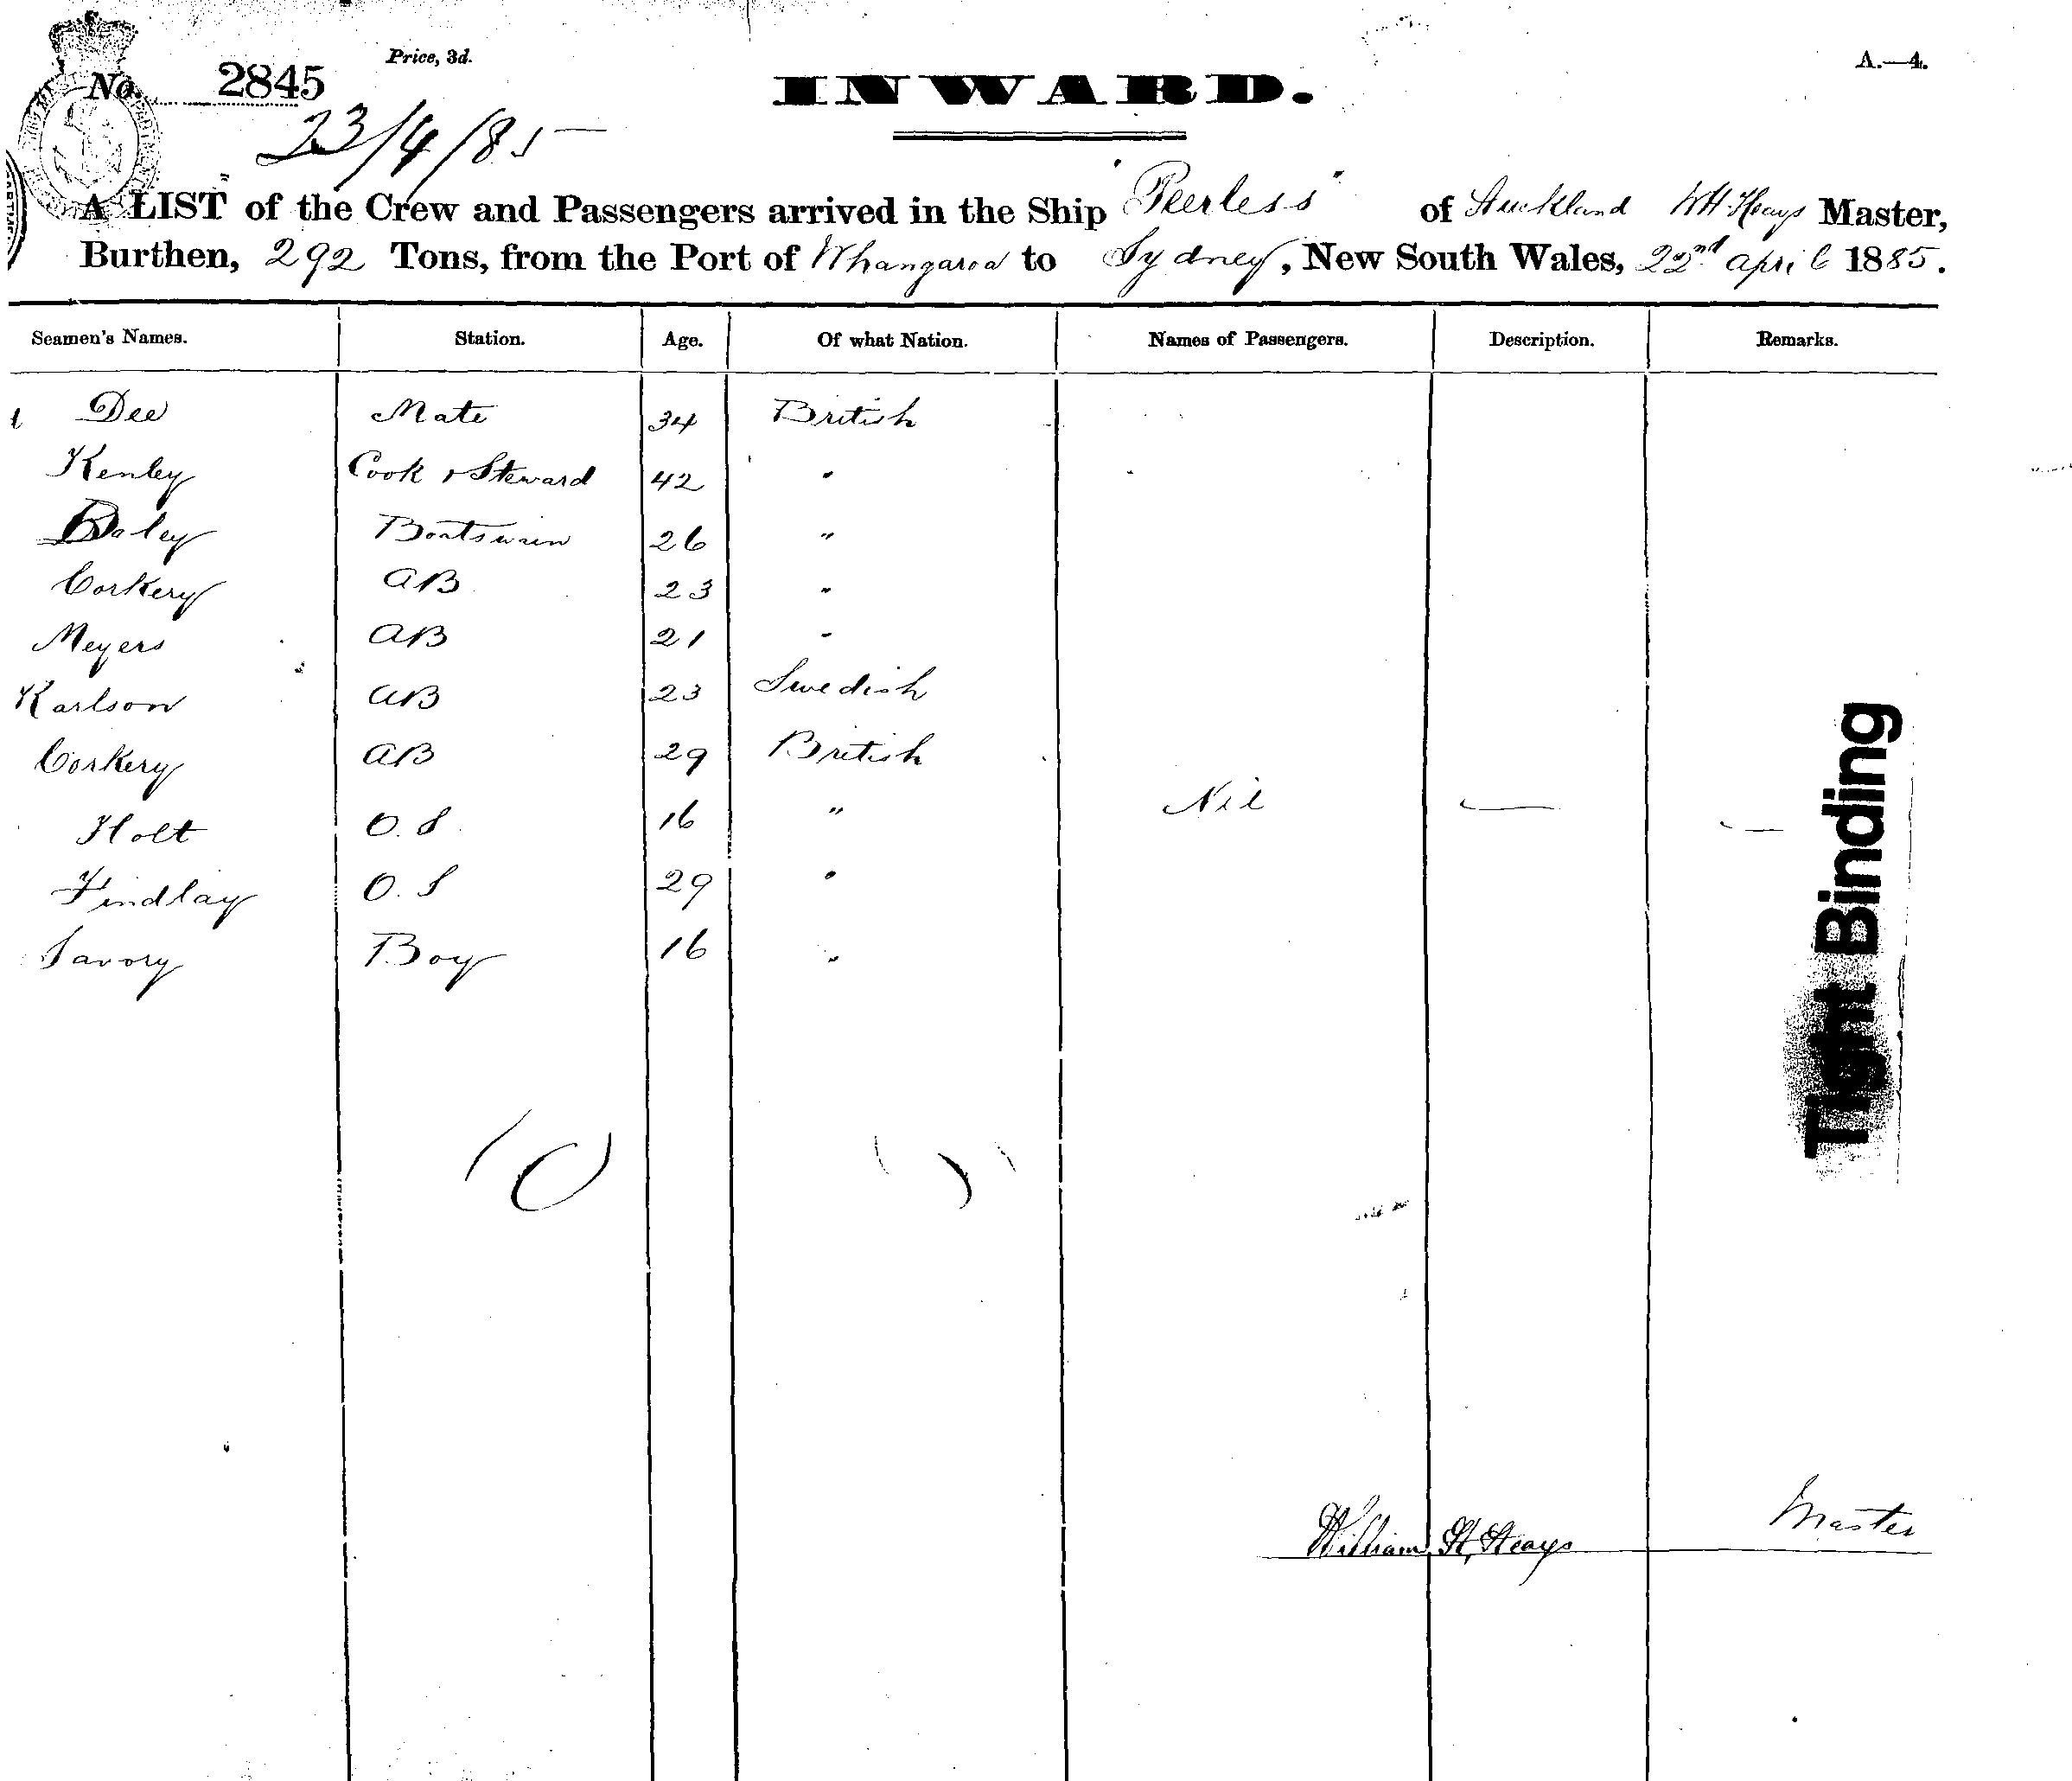 Price, 3d.
A.—4.
No. 2845
INWARD.
23/4/85
A LIST of the Crew and Passengers arrived in the Ship "Peerless" of Auckland WH Heays Master,
Burthen, 292 Tons, from the Port of Whangaroa to Sydney, New South Wales, 22nd april 1885.
Seamen's Names. Station. Age. Of what Nation. Names of Passengers. Description. Remarks.
Dee Mate 34 British
Kenley Cook & Steward 42 "
Daley Boatswain 26 "
Corkery AB 23 "
Meyers AB 21 "
Karlson AB 23 Swedish
Corkery AB 29 British
Nil —— —
Holt O.S. 16 "
Findlay O.S 29 "
Savory Boy 16 "
10
William H. Heays Master
Tight Binding